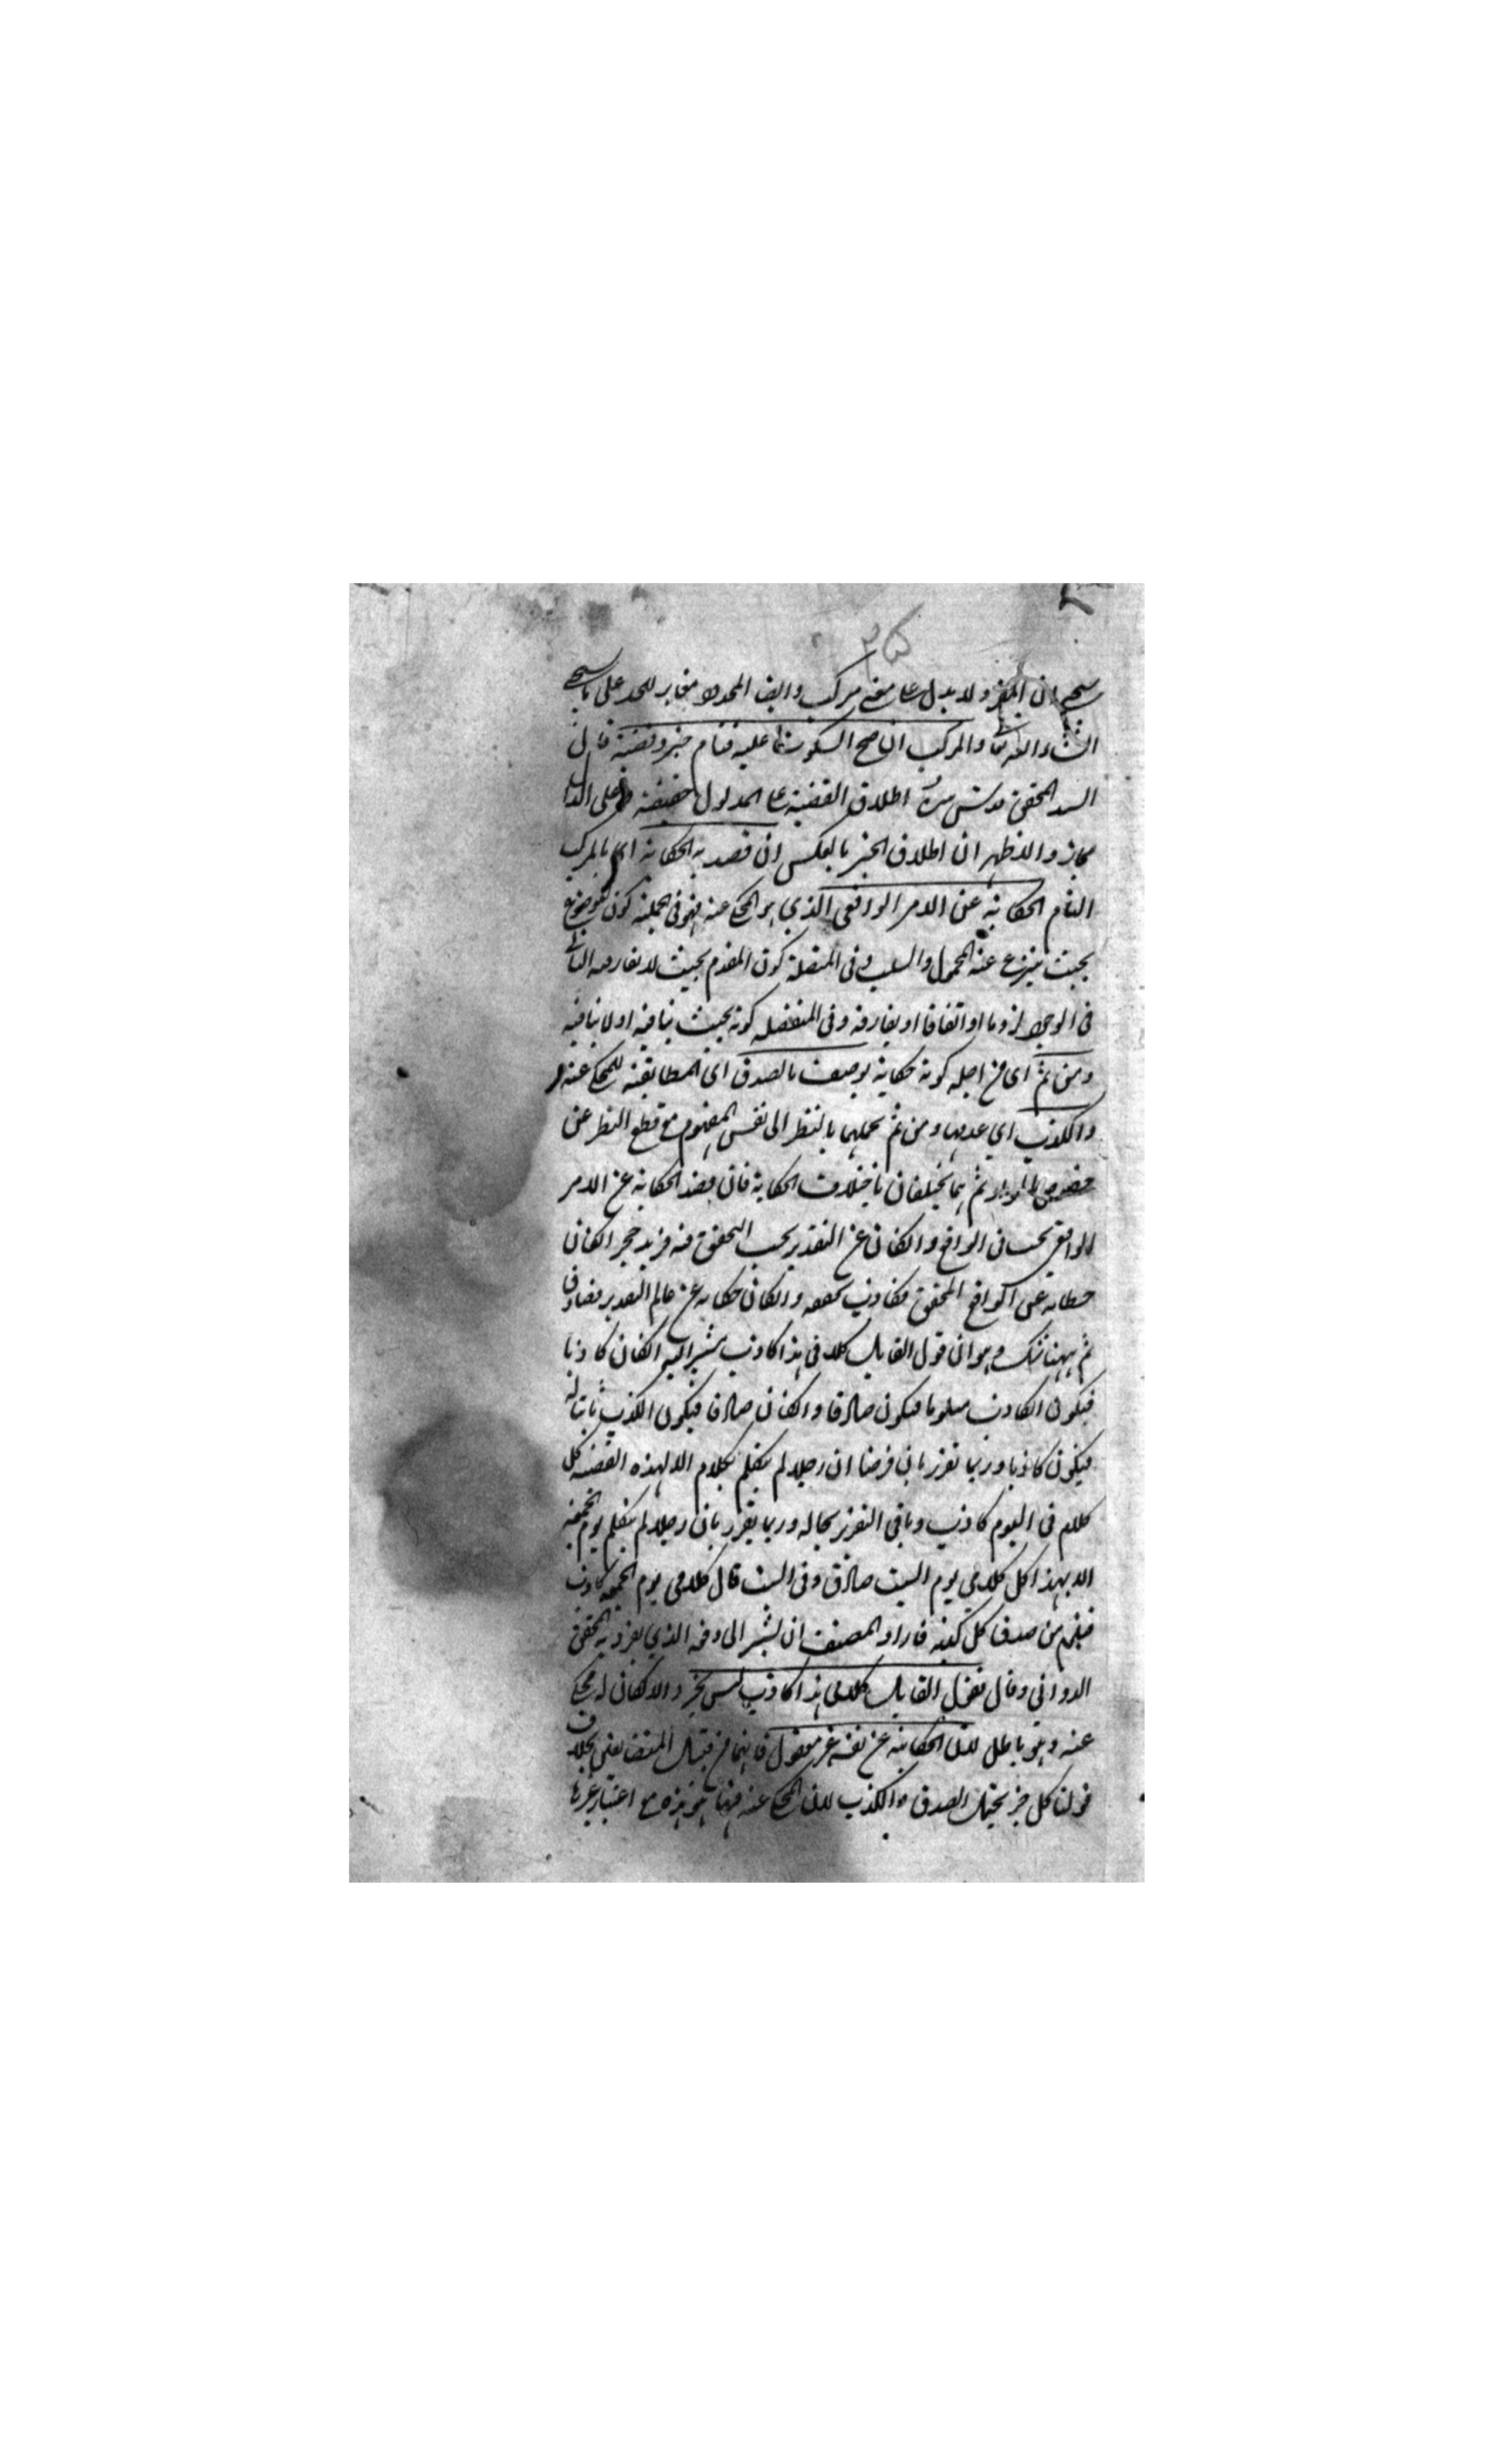 سيجي ان المفرد لا يدل على معنى مركب وايضا المحدود مغاير للحد على ما سيجي
انشاء الله تعالى والمركب ان صح السكوت عليه فتام خبر وقضية قال
السيد المحقق قدس سره اطلاق القضية على المدلول حقيقة وعلى الدال
مجاز والاظهر ان اطلاق الخبر بالعكس ان قصد به الحكاية اي بالمركب
التام الحكاية عن الامر الواقعي الذي هو المحكي عنه فهو في الحملية كون الموضوع
بحيث ينتزع عنه المحمول والسلب وفي المتصلة كون المقدم بحيث لا يفارقه التالي
في الوجود لزوما او اتفاقا او يفارقه وفي المنفصله كونه بحيث ينافيه او لا ينافيه
ومن ثم اي من اجله كونه حكاية يوصف بالصدق اي المطابقة للمحكي عنه
والكذب اي عدمها ومن ثم يحملهما بالنظر الى نفس المفهوم مع قطع النظر عن
خصوص ثم هما يختلفان باختلاف الحكاية فان قصد الحكاية عن الامر
الواقعي بحسب الواقع والكان عن التقدير بحسب التحقق فيه فزيد حجر انكان
حكاية عن الواقع المحقق فكاذب وانكان حكاية عن عالم التقدير فصادق
ثم ههنا شك وهو ان قول القايل كلامي هذا كاذب مشيرا اليه انكان كاذبا
فيكون الكاذب مسلوبا فيكون صادقا وانكان صادقا فيكون الكذب ثابتا له
فيكون كاذبا وربما تقرر بان فرضنا ان رجلا لم يتكلم بكلام الا لهذه القضيه كل
كلام في اليوم كاذب وباقي التقرير بحاله وربما يقرر بان رجلا لم يتكلم يوم الجمعة
الا بهذا كل كلامي يوم السبت صادق وفي السبت قال كلامي يوم الجمعة كاذب
فيلزم من صدق كل كذبه فاراد المصنف ان يشير الى دفعه الذي تفرد به المحقق
الدواني وقال فقول القايل كلامي هذا كاذب ليس بخبر والا لكان له محكي
عنه وهو باطل لان الحكاية عن نفسه غير معقول فانهما من قبيل المتضايفين بخلاف
قولنا كل خبر يحتمل الصدق والكذب لان المحكي عنه فيها هو هذه مع اعتبار غيرها